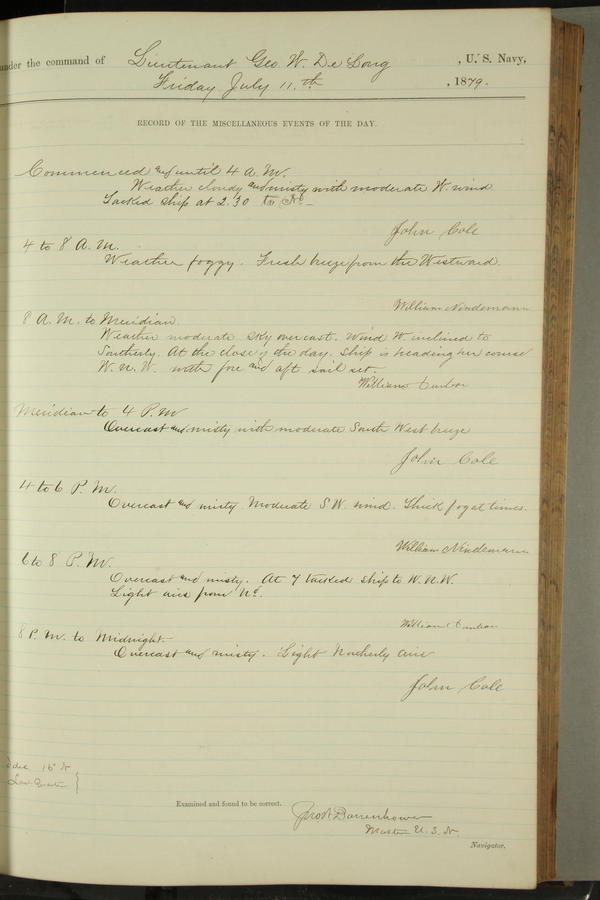 under the command of Lieutenant Geo. W. De Long, U. S. Navy,
Friday July 11.th, 1879.
RECORD OF THE MISCELLANEOUS EVENTS OF THE DAY.
Commenced and until 4 A. M.
Weather cloudy and misty with moderate W. wind
Tacked ship at 2.30 to Nd.
John Cole
4 to 8 A. M.
Weather foggy. Fresh breeze from the Westward.
William Nindemann
8 A. M. to Meridian
Weather moderate. Sky overcast. Wind W. inclined to
Southerly. At the close of the day. Ship is heading her course
W. N. W. with fore and aft sail set.
William Dunbar
Meridian to 4 P. M
Overcast and misty with moderate South West breeze
John Cole
4 to 6 P. M.
Overcast and misty. Moderate S.W. wind. Thick fog at times.
William Nindemann
6 to 8 P. M.
Overcast and misty. At 7 tacked ship to W. N. W.
Light airs from Nd.
William Dunbar
8 P. M. to Midnight.
Overcast and misty. Light Northerly airs
John Cole
Examined and found to be correct.
Danenhower
Master U. S. N.
Navigator.